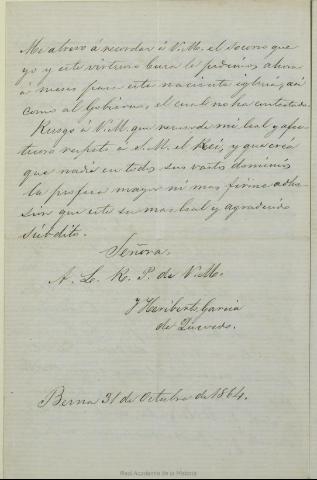 Me atrevo á recordar á V.M. el socorro que
yo y este virtuoso Cura le pedimos ahora
á meses para esta naciente iglesia, asi
como al Gobierno, el cual no ha contestado.
Ruego á V.M. que recuerde mi leal y afec-
tuoso respeto á S.M. el Rei, y que crea
que nadie en todos sus vastos dominios
la profesa mayor ni mas firme adhe-
sion que este su mas leal y agradecido
subdito.
Señora.
A. L. R. P. de V.M.
J Heriberto Garcia
de Quevedo.
Berna 31 de Octubre de 1864.
Real Academia de la Historia